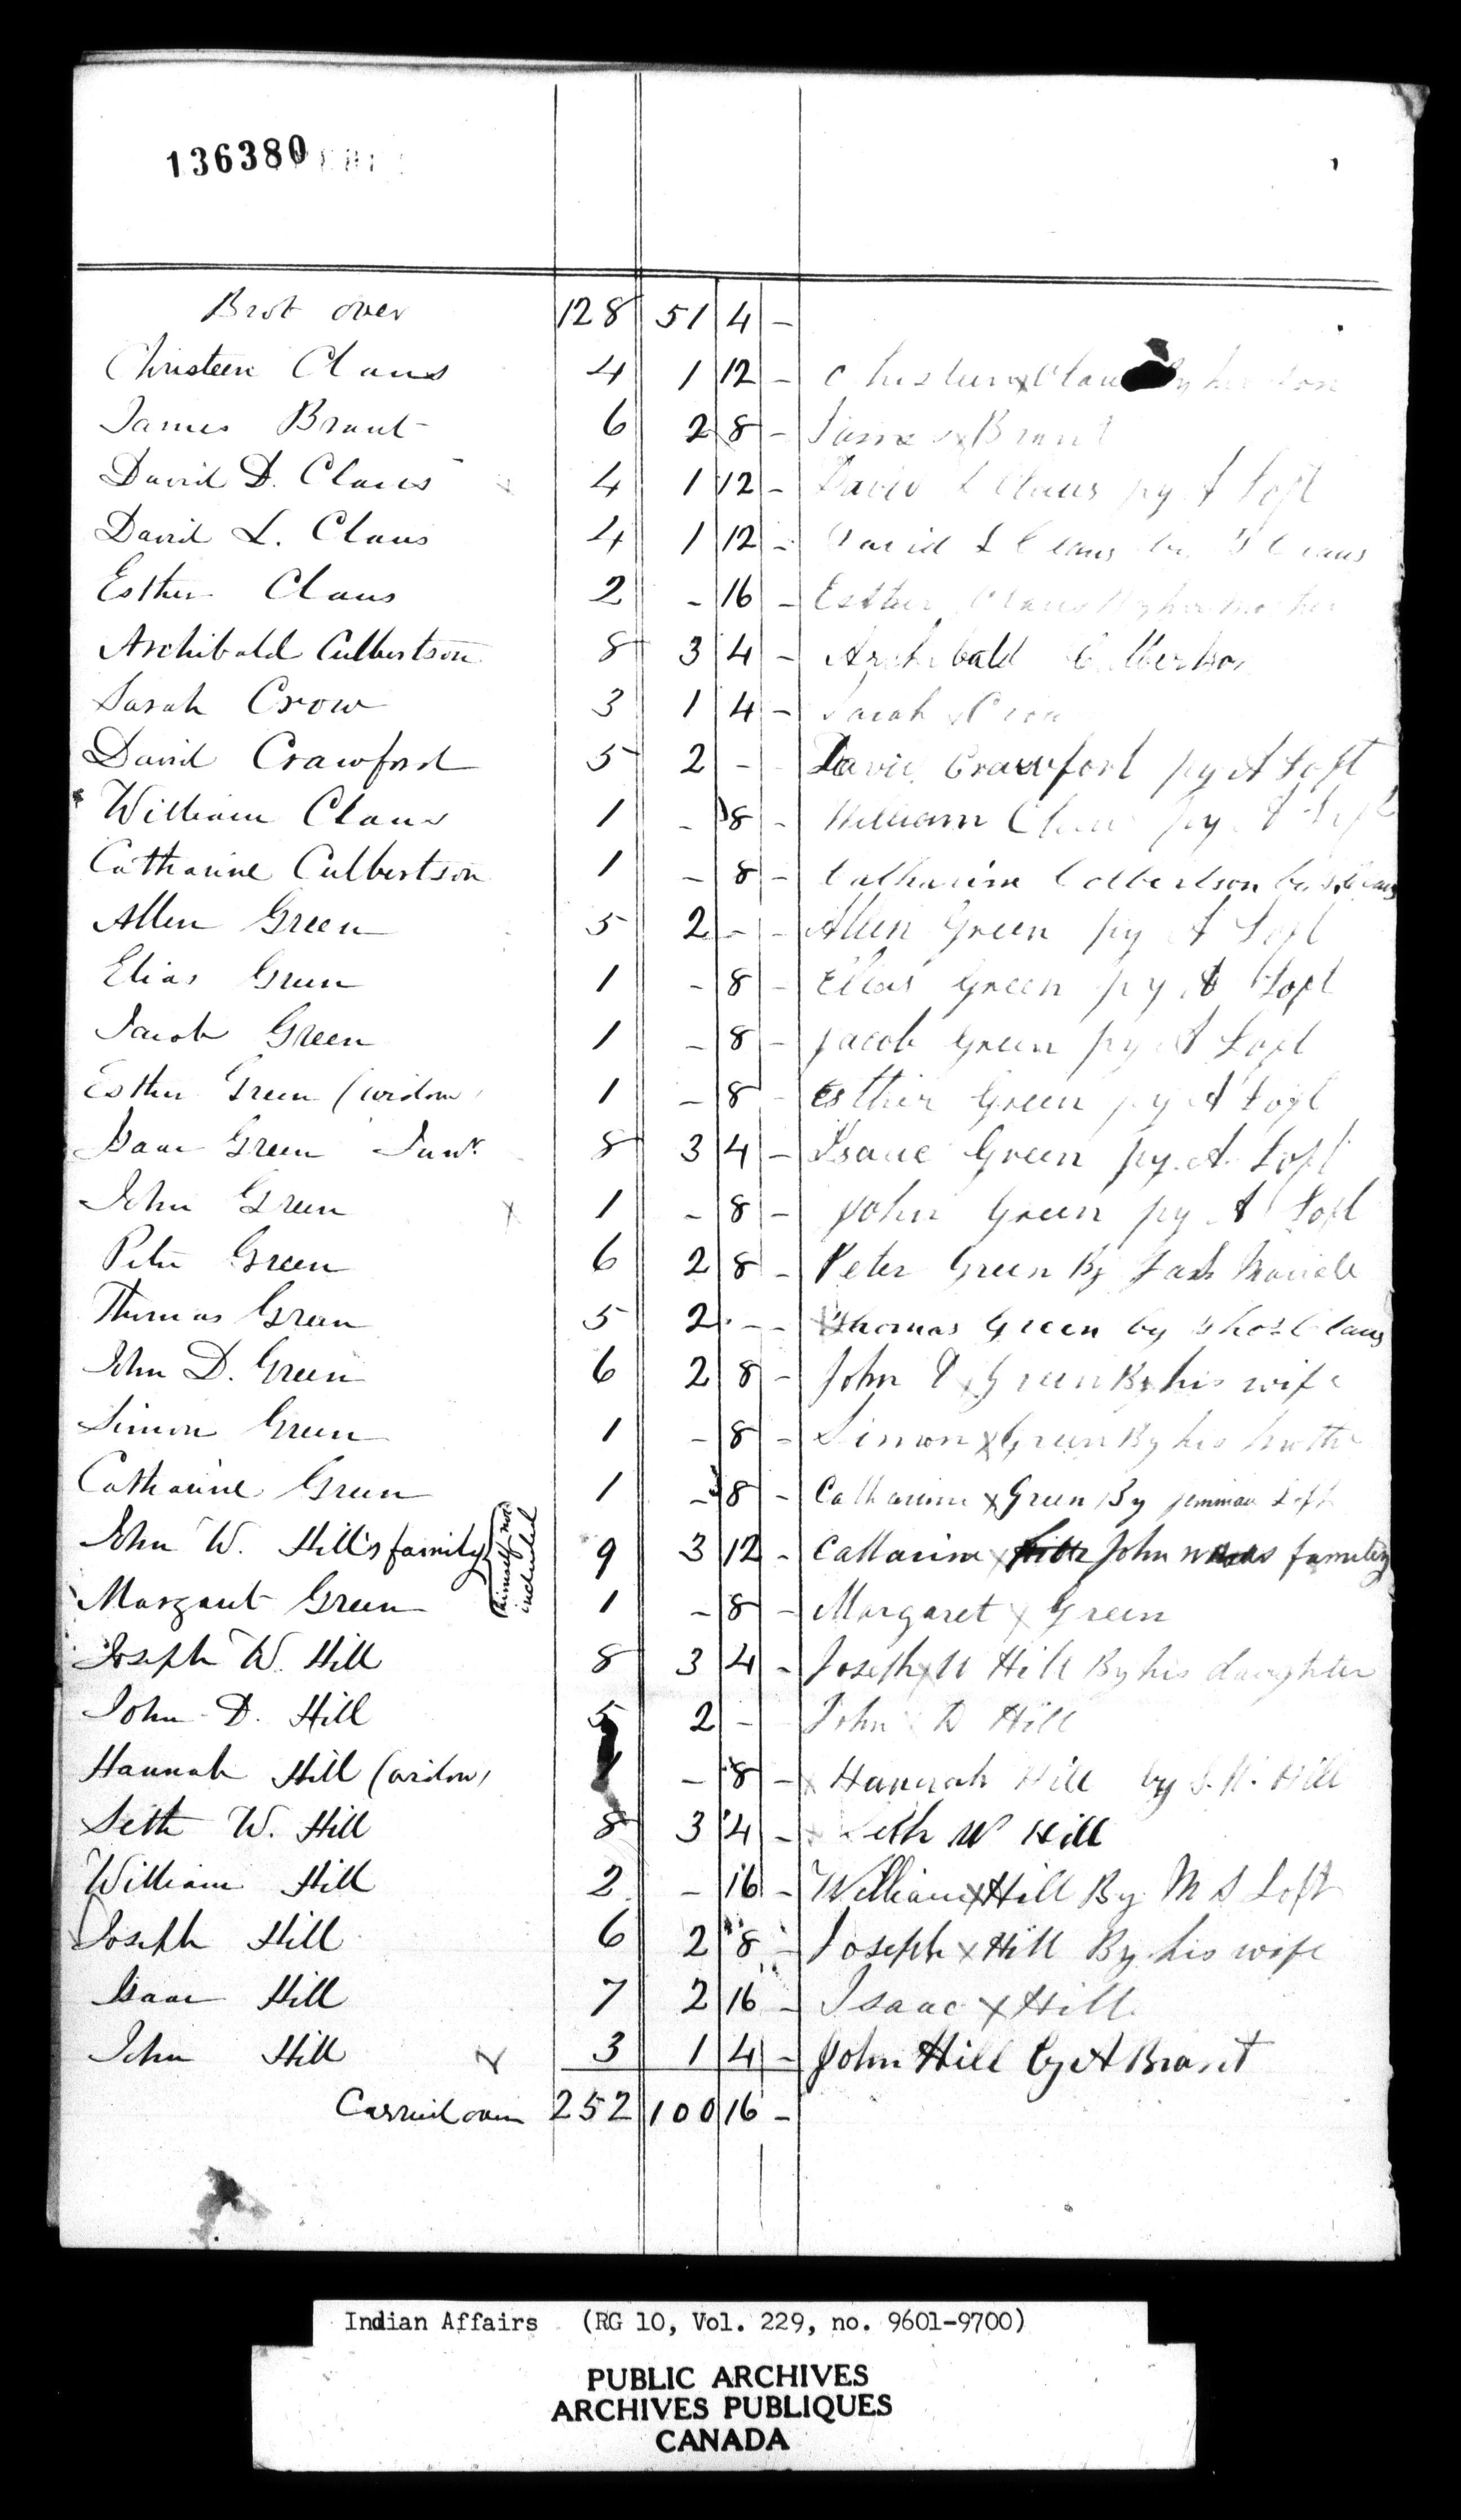 136380
Brot over 128 51 4 -
Christeen Claus 4 1 12 - Christeen x Claus By her son
James Brant 6 2 8 - James x Brant
David D. Claus 4 1 12 - David Claus py A Loft
David L. Claus 4 1 12 - David L Claus by Claus
Esther Claus 2 - 16 - Esther Claus By her mother
Archibald Culbertson 8 3 4 - Archibald Culbertson
Sarah Crow 3 1 4 - Sarah x Crow
David Crawford 5 2 - - David Crawford py A Loft
William Claus 1 - 8 - William Claus py A Loft
Catharine Culbertson 1 - 8 - Catharine Colbertson by Claus
Allen Green 5 2 - - Allen Green py A Loft
Elias Green 1 - 8 - Elias Green py A Loft
Jacob Green 1 - 8 - Jacob Green py A Loft
Esther Green (widow) 1 - 8 - Esther Green py A Loft
Isaac Green Junr. 8 3 4 - Isaac Green py A. Loft
John Green x 1 - 8 - John Green py A Loft
Peter Green 6 2 8 - Peter Green By
Thomas Green 5 2 - - Thomas Green by Thos Claus
John D. Green 6 2 8 - John D x Green By his wife
Simon Green 1 - 8 - Simon x Green By his
Catharine Green 1 - 8 - Catharine x Green By jemima Loft
John W. Hill's family (himself not included 9 3 12 - Catharine x John W Hills family
Margaret Green 1 - 8 - Margaret x Green
Joseph W. Hill 8 3 4 - Joseph x W Hill By his daughter
John D. Hill 5 2 - John D Hill
Hannah Hill (widow) 1 - 8 - x Hannah Hill by S. W. Hill
Seth W. Hill 8 3 4 - Seth W Hill
William Hill 2 - 16 - William x Hill By M S Loft
Joseph Hill 6 2 8 - Joseph x Hill By his wife
Isaac Hill 7 2 16 - Isaac x Hill
John Hill x 3 1 4 - John Hill by A Brant
Carried over 252 100 16 -
Indian Affairs (RG 10, Vol. 229, no. 9601-9700)
PUBLIC ARCHIVES
ARCHIVES PUBLIQUES
CANADA